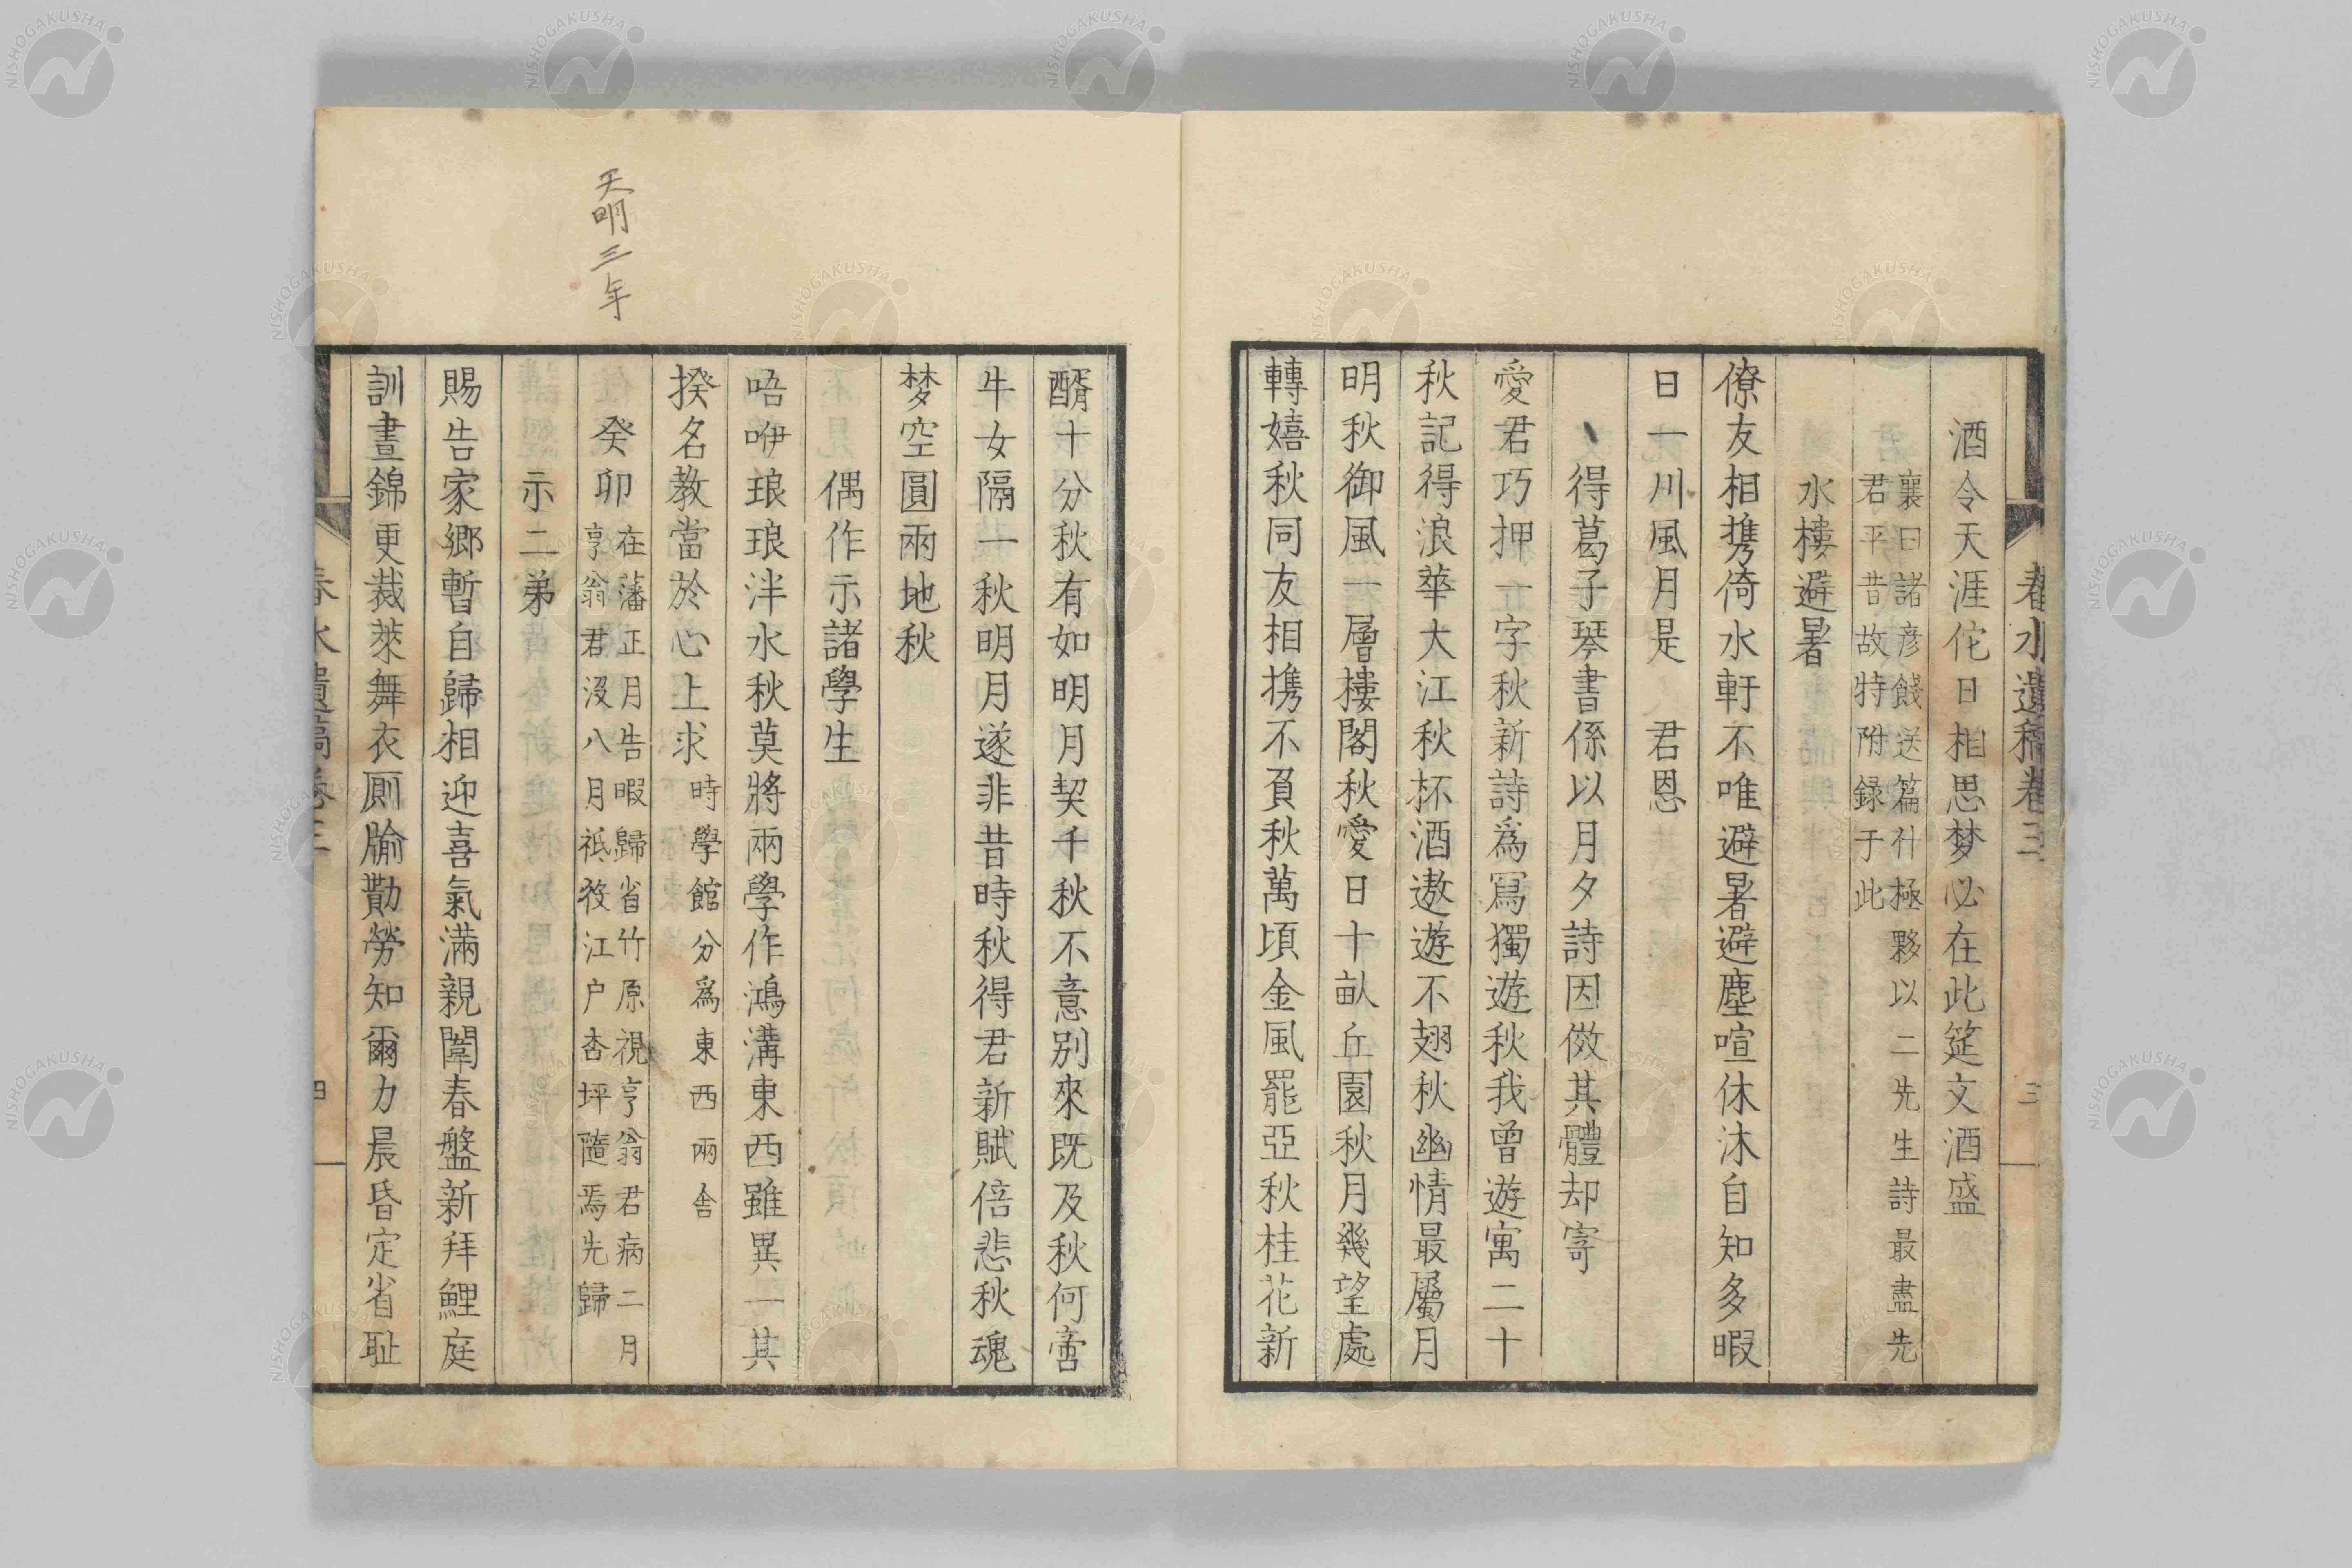 春水遺稿卷三
三
酒令天涯佗日相思梦必在此筵文酒盛
襄曰諸彦餞送篇什極夥以二先生詩最盡先
君平昔故特附録于此
水樓避暑
僚友相携倚水軒不唯避暑避塵喧休沐自知多暇
日一川風月是　君恩
得葛子琴書係以月夕詩因傚其體却寄
愛君巧押一字秋新詩爲冩獨遊秋我曾遊寓二十
秋記得浪華大江秋杯酒遨遊不翅秋幽情最屬月
明秋御風一層樓閣秋愛日十畝丘園秋月幾望處
轉嬉秋同友相携不負秋萬頃金風罷亞秋桂花新
醑十分秋有如明月契千秋不意別來既及秋何啻
牛女隔一秋明月遂非昔時秋得君新賦倍悲秋魂
梦空圓兩地秋
偶作示諸學生
唔咿琅琅泮水秋莫將兩學作鴻溝東西雖異一其
揆名教當於心上求時學館分爲東西兩舎
天明三年
癸卯
在藩正月告暇歸省竹原視亨翁君病二月
亨翁君沒八月祗役江戸杏坪隨焉先歸
示二弟
賜告家鄉暫自歸相迎喜氣滿親闈春盤新拜鯉庭
訓晝錦更裁萊舞衣厠牏勩勞知爾力晨昏定省耻
春水遺稿卷三
四